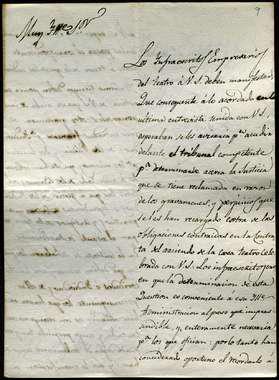 9
Muy Ylle Sor
Los Infraescritos Empresarios
del Teatro á V.S. deben manifestar:
Que consequente á lo acordado en la
ultima entrevista tenida con V.S.,
esperaban se les avisara pa acudir
delante el tribunal competente
pa determinarse acerca la Justicia
que se tiene reclamada en razon
de los gravamenes, y perjuicios que
se les han recargado contra de las
obligaciones contraidas en la Contra
ta del arriendo de la Casa Teatro cele
brada con V.S. Los infraescritos
en que la determinacion de esta
Question es conveniente á esa Ylle
Administracion al paso que impres
cindible, y enteramente necesaria
pa los que firman: por lo tanto han
considerado oportuno el recordarlo á